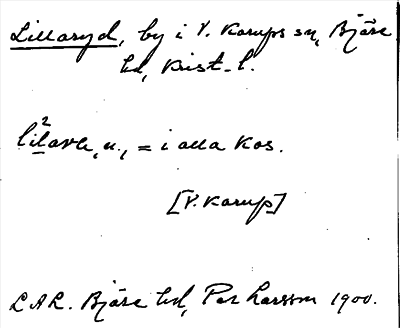 Lillaryd, by i V. Karups sn, Bjäre
hd, Krist. l.
li²lavh, n., = i alla kas.
[V. Karup]
LAL. Bjäre hd, Per Larsson 1900.